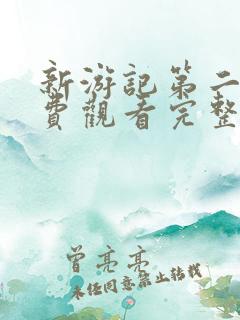 新游记第二
费观看完整
曾亮亮
未经同意禁止转载